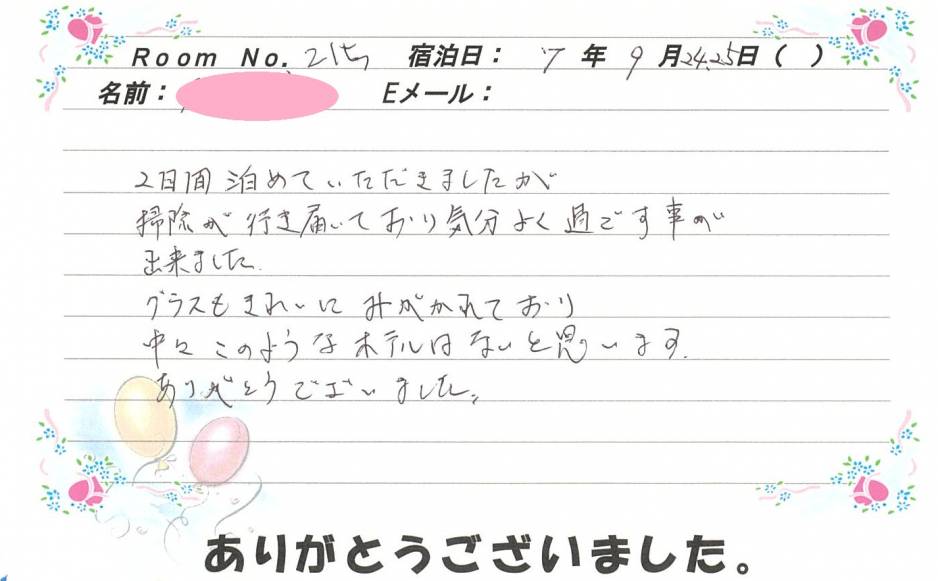 Room No. 215 宿泊日： 7 年 9 月24.25日（ ）
名前： Eメール：
2日間 泊めていただきましたが
掃除が 行き届いており気分よく過ごす事が
出来ました.
グラスもきれいに みがかれており
中々 このようなホテルはないと思います.
ありがとうございました。
ありがとうございました。